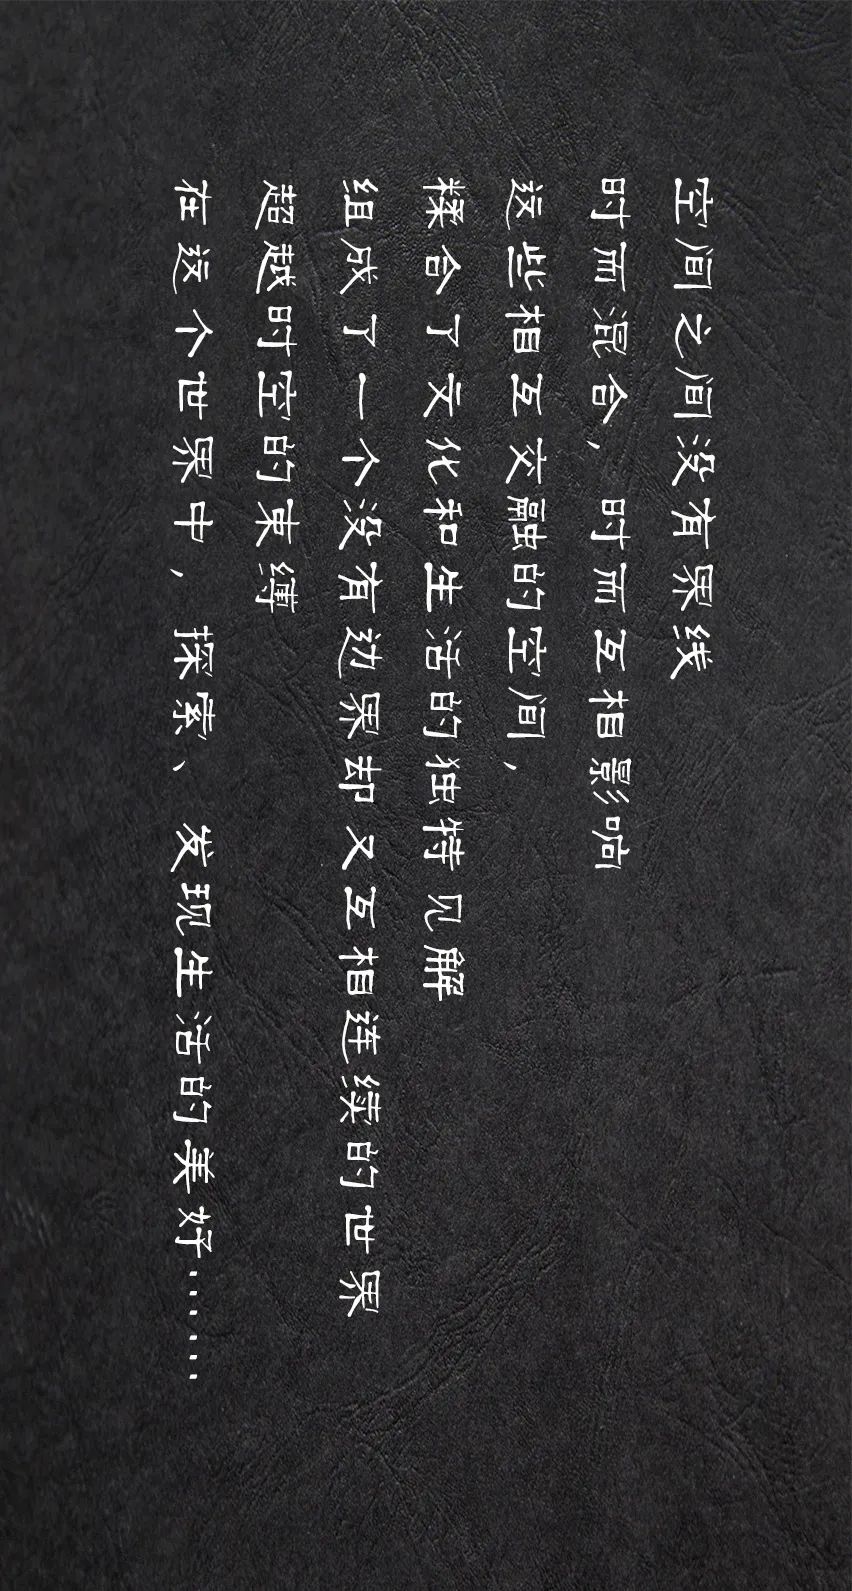 空间之间没有界线
时而混合，时而互相影响
这些相互交融的空间，
糅合了文化和生活的独特见解
组成了一个没有边界却又互相连续的世界
超越时空的束缚
在这个世界中，探索、发现生活的美好……